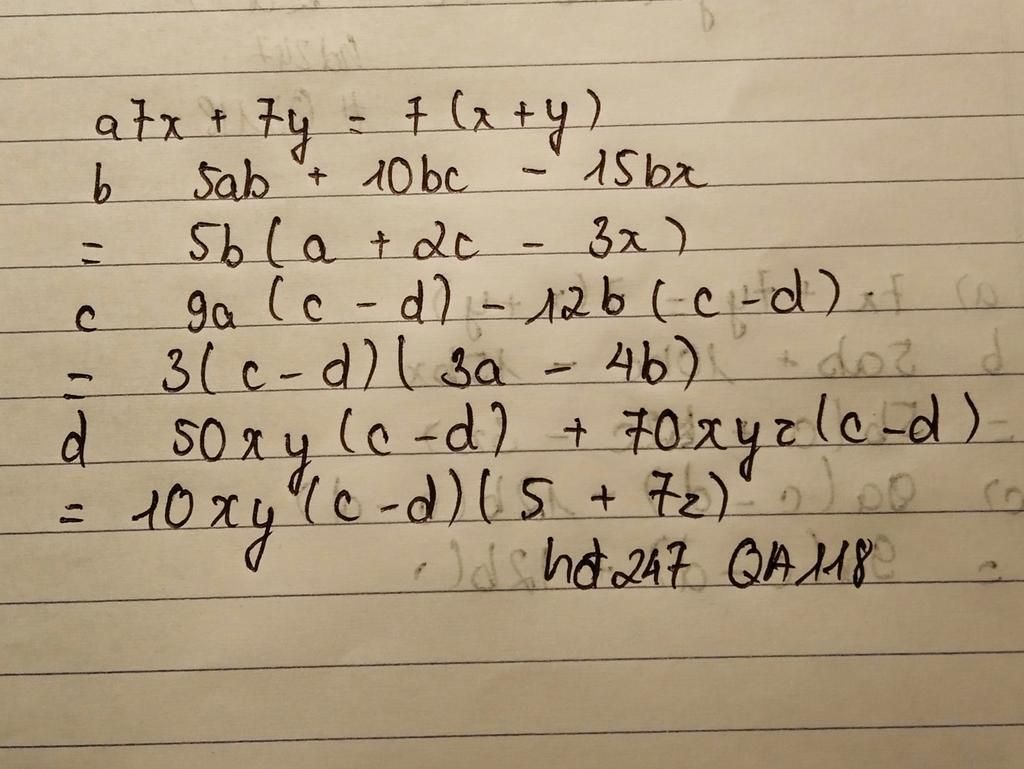 a 7x + 7y = 7 (x + y)
b 5ab + 10bc - 15bx
= 5b ( a + 2c - 3x )
c 9a ( c - d ) - 12b ( c - d )
= 3( c - d ) ( 3a - 4b )
d 50xy ( c - d ) + 70xyz ( c - d )
= 10xy ( c - d ) ( 5 + 7z )
hd247 QA118